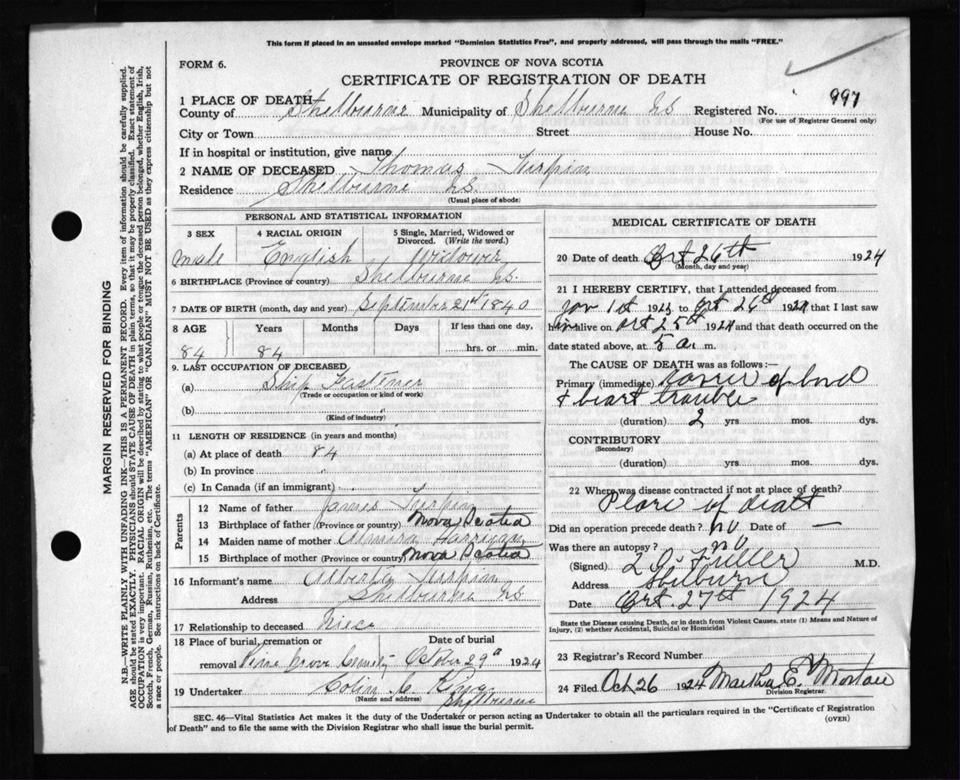 This form if placed in an unsealed envelope marked "Dominion Statistics Free", and properly addressed, will pass through the mails "FREE."
FORM 6.
PROVINCE OF NOVA SCOTIA
CERTIFICATE OF REGISTRATION OF DEATH
997
1 PLACE OF DEATH
County of Shelburne Municipality of Shelburne NS Registered No.
(For use of Registrar General only)
City or Town Street House No.
If in hospital or institution, give name
2 NAME OF DECEASED Thomas Turpin
Residence Shelburne NS.
(Usual place of abode)
PERSONAL AND STATISTICAL INFORMATION
3 SEX 4 RACIAL ORIGIN 5 Single, Married, Widowed or Divorced. (Write the word.)
male English Widower
6 BIRTHPLACE (Province or country) Shelburne NS.
7 DATE OF BIRTH (month, day and year) September 21st 1840
8 AGE Years Months Days If less than one day,
84 84 hrs. or min.
9. LAST OCCUPATION OF DECEASED
(a) Ship Fastener
(Trade or occupation or kind of work)
(b)
(Kind of industry)
11 LENGTH OF RESIDENCE (in years and months)
(a) At place of death 84
(b) In province
(c) In Canada (if an immigrant)
Parents
12 Name of father James Turpin
13 Birthplace of father (Province or country) Nova Scotia
14 Maiden name of mother
15 Birthplace of mother (Province or country) Nova Scotia
16 Informant's name Turpin
Address Shelburne NS
17 Relationship to deceased Niece
18 Place of burial, cremation or Date of burial
removal Pine Grove October 29th 1924
19 Undertaker Colin C. King
(Name and address) Shelburne
MEDICAL CERTIFICATE OF DEATH
20 Date of death Oct 26th 1924
(Month, day and year)
21 I HEREBY CERTIFY, that I attended deceased from
Jan 1st 192 to Oct 26th 1924 that I last saw
him alive on Oct 25th 1924 and that death occurred on the
date stated above, at 5 a. m.
The CAUSE OF DEATH was as follows:—
Primary (immediate) Cancer of
& heart trouble
(duration) 2 yrs mos. dys.
CONTRIBUTORY
(Secondary)
(duration) yrs. mos. dys.
22 Where was disease contracted if not at place of death?
Place of death
Did an operation precede death? no Date of —
Was there an autopsy? no
(Signed) L O Fuller M.D.
Address Shelburn
Date Oct. 27th 1924
State the Disease causing Death, or in death from Violent Causes, state (1) Means and Nature of
Injury, (2) whether Accidental, Suicidal or Homicidal
23 Registrar's Record Number
24 Filed Oct 26 1924 Martha E. Morton
Division Registrar.
SEC. 46—Vital Statistics Act makes it the duty of the Undertaker or person acting as Undertaker to obtain all the particulars required in the "Certificate of Registration
of Death" and to file the same with the Division Registrar who shall issue the burial permit.
(OVER)
MARGIN RESERVED FOR BINDING
N.B.—WRITE PLAINLY WITH UNFADING INK—THIS IS A PERMANENT RECORD. Every item of information should be carefully supplied.
AGE should be stated EXACTLY. PHYSICIANS should STATE CAUSE OF DEATH in plain terms, so that it may be properly classified. Exact statement of
OCCUPATION is very important. RACIAL ORIGIN will be described by stating to what people or tongue the deceased person belonged, whether English, Irish,
Scotch, French, German, Russian, Ruthenian, etc. The terms "AMERICAN" OR "CANADIAN" MUST NOT BE USED as they express citizenship but not
a race or people. See instructions on back of Certificate.